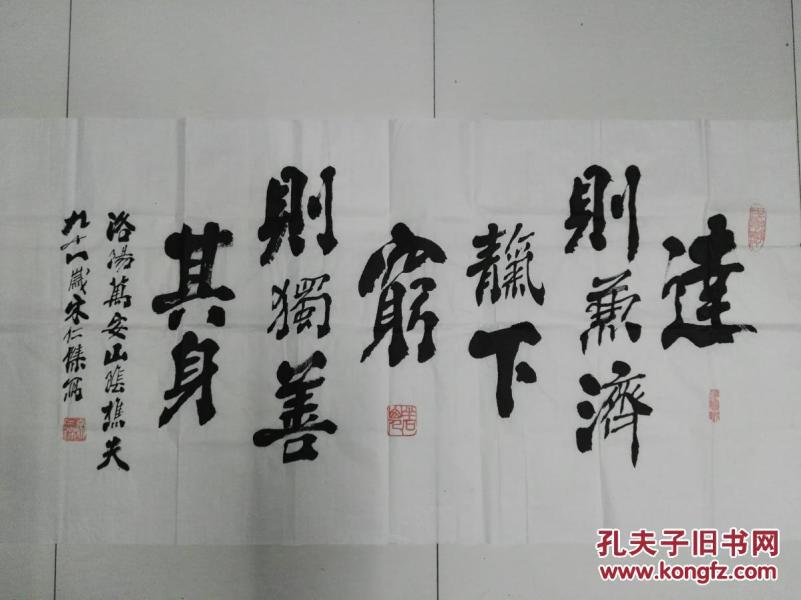 達
則兼濟
靝下
窮
則獨善
其身
洛陽萬安山陰樵夫
九十八歲朱仁傑寫
孔夫子旧书网
www.kongfz.com